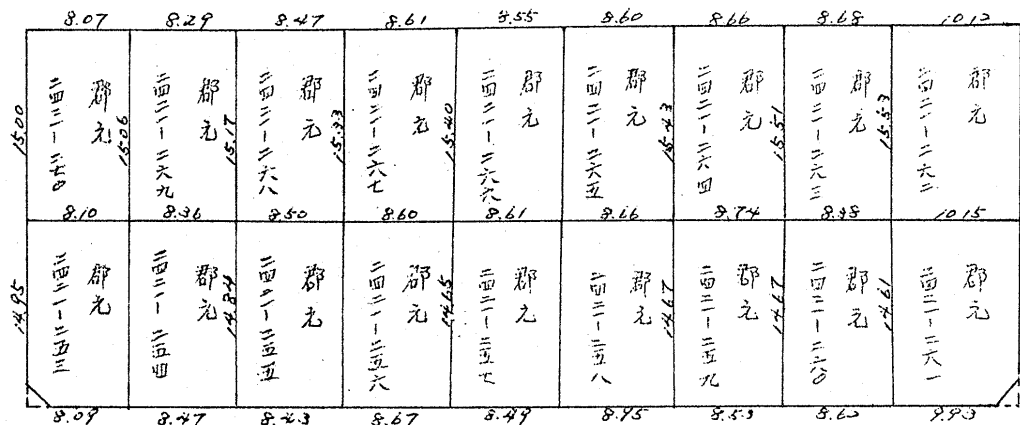 8.07 8.29 8.47 8.61 8.55 8.60 8.66 8.68 10.12
15.00
郡元
二四二一-二七〇
15.06
郡元
二四二一-二六九
15.17
郡元
二四二一-二六八
15.33
郡元
二四二一-二六七
15.40
郡元
二四二一-二六六
郡元
二四二一-二六五
15.43
郡元
二四二一-二六四
15.51
郡元
二四二一-二六三
15.53
郡元
二四二一-二六二
8.10 8.36 8.50 8.60 8.61 8.66 8.74 10.15
14.95
郡元
二四二一-二五三
郡元
二四二一-二五四
14.84
郡元
二四二一-二五五
郡元
二四二一-二五六
14.65
郡元
二四二一-二五七
郡元
二四二一-二五八
14.67
郡元
二四二一-二五九
14.67
郡元
二四二一-二六〇
14.61
郡元
二四二一-二六一
8.09 8.47 8.43 8.67 8.49 8.95 8.53 8.63 9.93